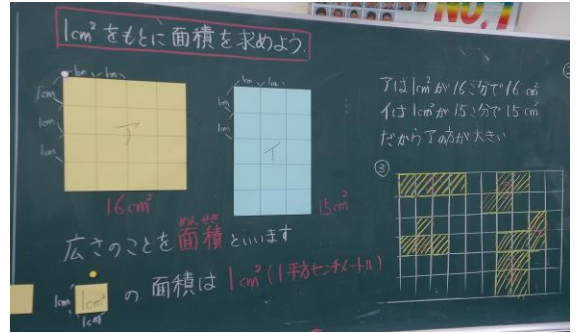 NO.1
1cm²をもとに面積を求めよう。
1cm 1cm
1cm
1cm
1cm
ア
16cm²
1cm 1cm
1cm
1cm
イ
15cm²
アは1cm²が16こ分で16cm²
イは1cm²が15こ分で15cm²
だからアの方が大きい
③
めんせき
広さのことを面積といいます
1cm
1cm²
1cm
の面積は1cm²(1平方センチメートル)